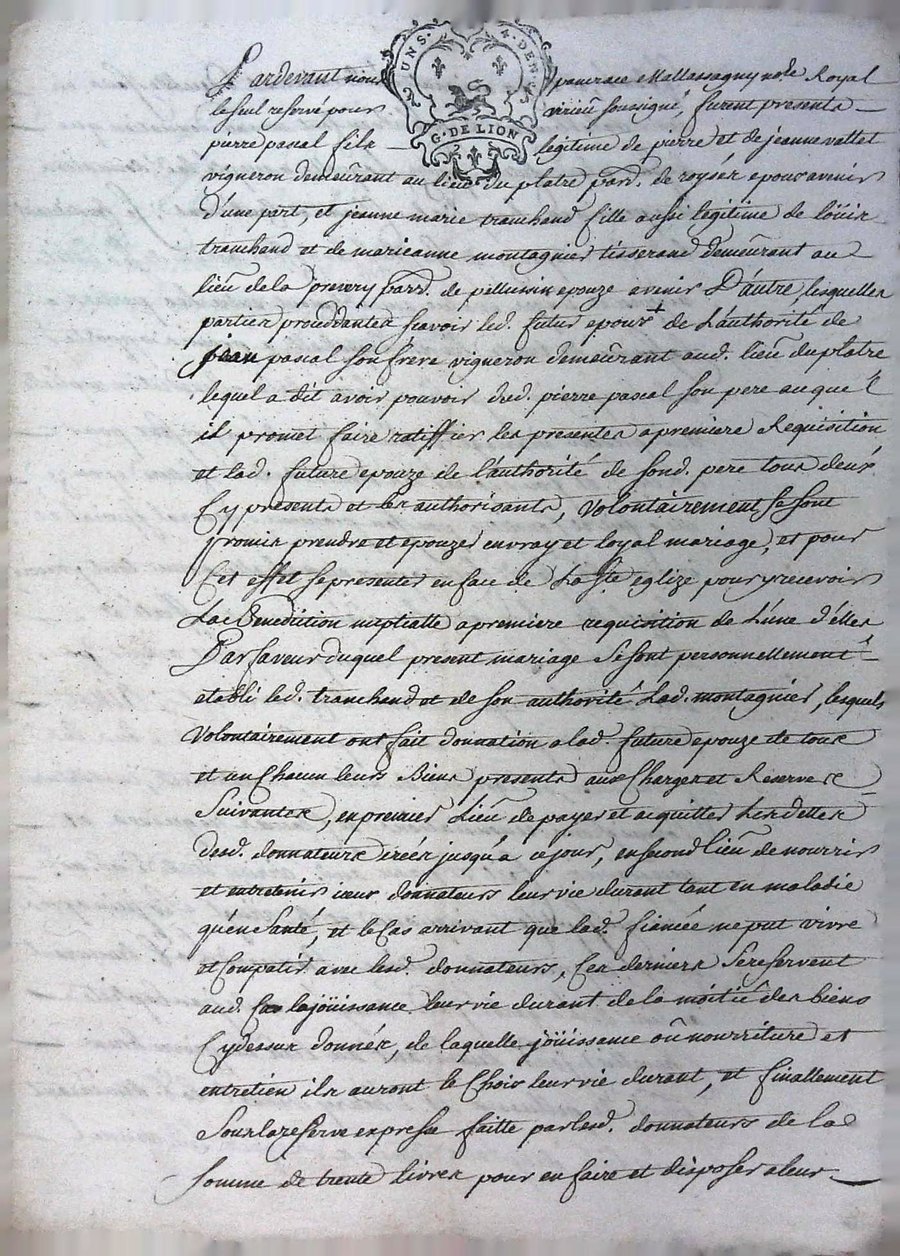 UN S. 4. DEN.
G. DE LION
Pardevant nous pancrace Mallassagny no.re Royal
le seul reservé pour virieu soussigné, furent presents
pierre pascal fils legitime de pierre et de jeanne vallet
vigneron demeûrant au lieu du platre par.d de roysér epoux avenir
d'une part, et jeanne marie tranchand fille aussi legitime de loüis
tranchand et de marieanne montagnier tisserand demeûrant au
lieu de la prevery parr.d de pellussin epouze avenir D'autre, lesquelles
parties proceddantes scavoir led. futur epoux + de L'authorité de
jean pascal son frere vigneron demeûrant aud. lieu du platre
lequel a dit avoir pouvoir dud. pierre pascal son pere auquel
il promet faire ratiffier les presentes a premiere Requisition
et lad. future epouze de l'authorité de sond. pere tous deux
Cy presents et les authorisants, Volontairement se sont
promis prendre et epouzer en vray et loyal mariage, et pour
Cet effet se presenter en face de La Ste eglize pour y recevoir
La Benediction nuptialle a premiere requisition de L'une d'élles
Par faveur duquel present mariage se sont personnellement
etabli led. tranchand et de son authorité Lad. montagnier, lesquels
Volontairement ont fait donnation a lad. future epouze de tous
et un Chacun leurs Biens presents aux Charges et Reserves
Suivantes, en premier Lieu de payer et acquitter Les dettes
desd. donnateurs créés jusqu'a ce jour, en second lieu de nourrir
et entretenir iceux donnateurs leur vie durant tant en maladie
qu'en Santé, et le Cas arrivant que lad. fiancée ne put vivre
et Compatir avec lesd. donnateurs, Ces derniers Se reservent
aud. Cas la joüissance leur vie durant de la moitié des biens
Cy dessus donnés, de laquelle joüissance oû nourriture et
entretien ils auront le Choix leur vie durant, et finallement
Sous la reserve expresse faitte par lesd. donnateurs de la
Somme de trente livres pour en faire et disposer a leur